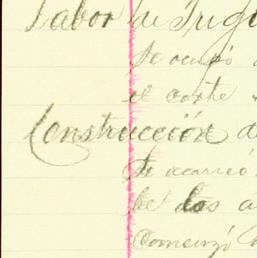 Labor de Trigo
Se ocupó
el corte
Construcción de
Se acarreó
de los a
Comenzó